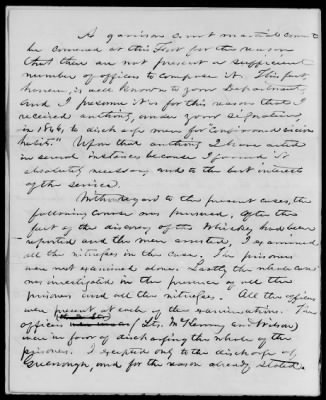 A garrison court martial cannot
be convened at this Post for the reason
that there are not present a sufficient
number of officers to compose it. This fact,
however, is well known to your Department,
and I presume it is for this reason that I
received authority, under your signature,
in 1846, to discharge men for "confirmed vicious
habits." Upon that authority I have acted
in several instances because I found it
absolutely necessary and to the best interests
of the service.
With regard to the present cases, the
following course was pursued. After the
fact of the discovery of the Whiskey had been
reported and the men arrested, I examined
all the witnesses in the case. The prisoners
were next examined alone. Lastly the whole case
was investigated in the presence of all the
prisoners and all the witnesses. All the officers
were present at each of the examinations. Two
officers (Lts. McKenny and Wilson)
were in favor of discharging the whole of the
prisoners. I excepted only to the discharge of
Greenough, and for the reason already stated.